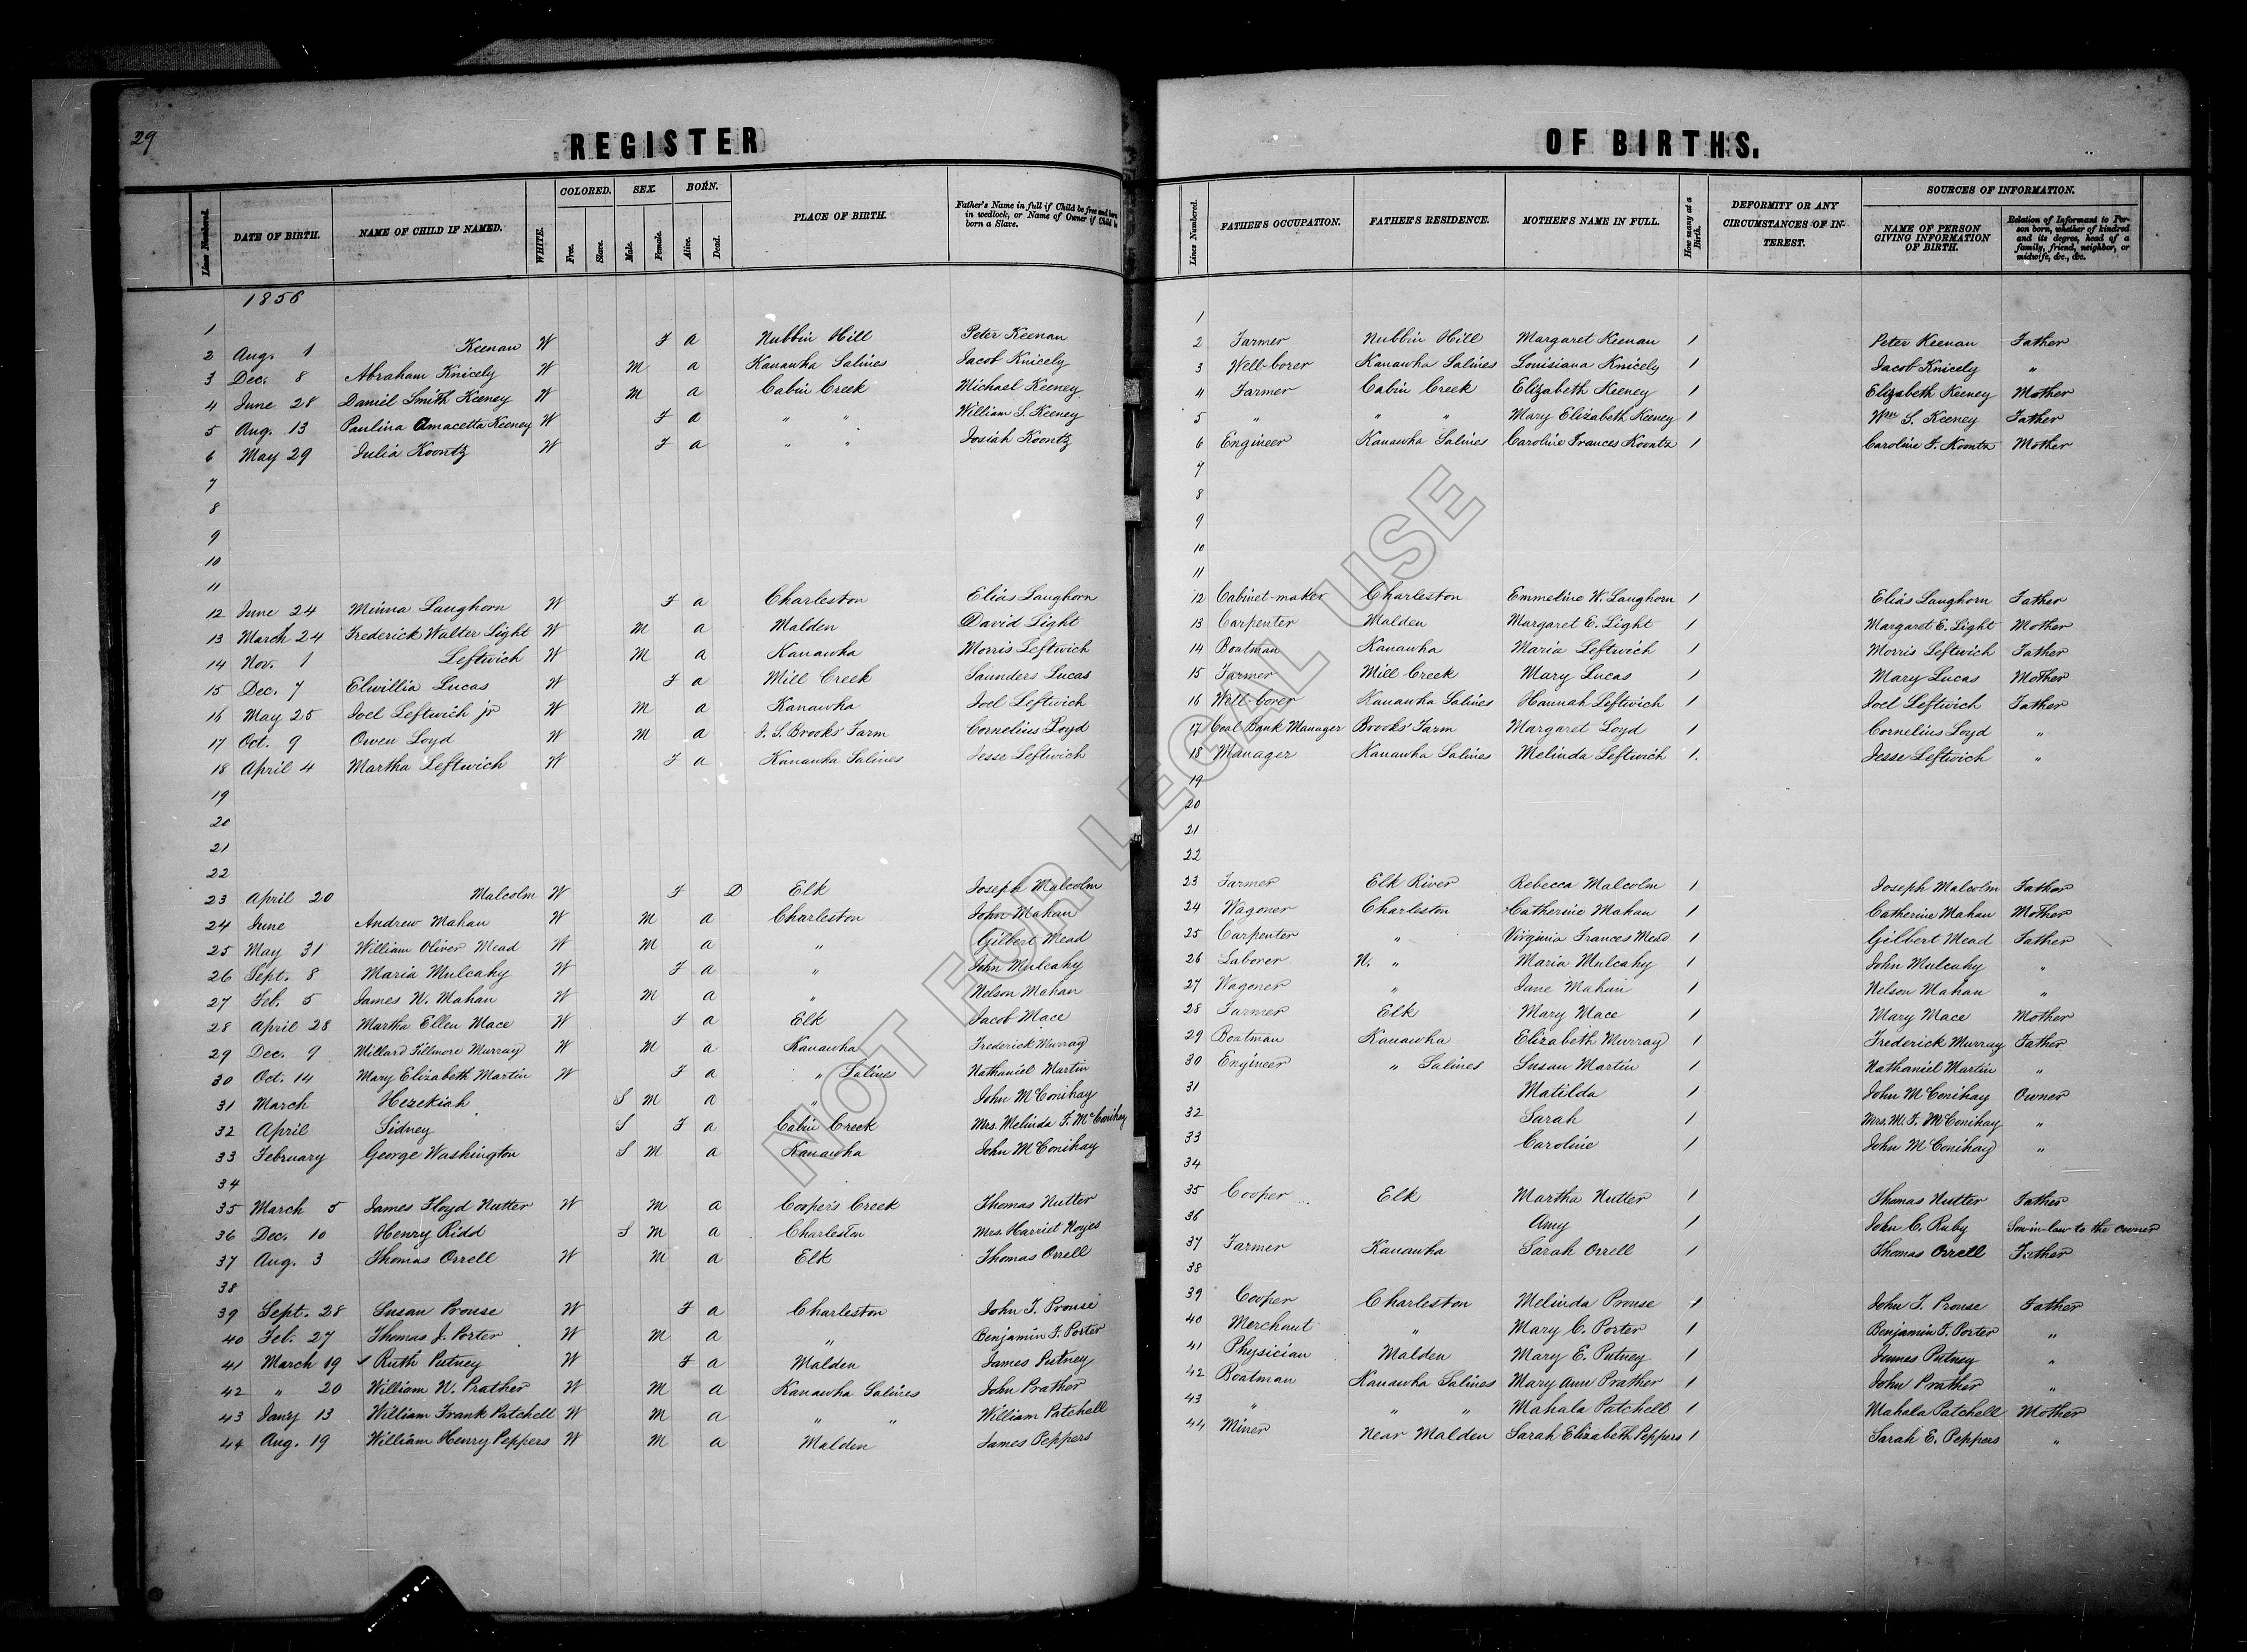 29
REGISTER OF BIRTHS.
Lines Numbered. DATE OF BIRTH. NAME OF CHILD IF NAMED. WHITE. COLORED. Free. Slave. SEX. Male. Female. BORN. Alive. Dead. PLACE OF BIRTH. Father's Name in full if Child be free and born in wedlock, or Name of Owner if Child be born a Slave.
Lines Numbered. FATHER'S OCCUPATION. FATHER'S RESIDENCE. MOTHER'S NAME IN FULL. How many at a Birth. DEFORMITY OR ANY CIRCUMSTANCES OF INTEREST. SOURCES OF INFORMATION. NAME OF PERSON GIVING INFORMATION OF BIRTH. Relation of Informant to Person born, whether of kindred and its degree, head of a family, friend, neighbor, or midwife, &c., &c.
1856
1 1
2 Aug. 1 Keenan W F a Nubbin Hill Peter Keenan 2 Farmer Nubbin Hill Margaret Keenan 1 Peter Keenan Father
3 Dec. 8 Abraham Knicely W M a Kanawha Salines Jacob Knicely 3 Well-borer Kanawha Salines Louisiana Knicely 1 Jacob Knicely "
4 June 28 Daniel Smith Keeney W M a Cabin Creek Michael Keeney 4 Farmer Cabin Creek Elizabeth Keeney 1 Elizabeth Keeney Mother
5 Aug. 13 Paulina Amacetta Keeney W F a " " William S. Keeney 5 " " " Mary Elizabeth Keeney 1 Wm S. Keeney Father
6 May 29 Julia Koontz W F a " " Josiah Koontz 6 Engineer Kanawha Salines Caroline Frances Koontz 1 Caroline F. Koontz Mother
7 7
8 8
9 9
10 10
11 11
12 June 24 Minna Laughorn W F a Charleston Elias Laughorn 12 Cabinet-maker Charleston Emmeline W. Laughorn 1 Elias Laughorn Father
13 March 24 Frederick Walter Light W M a Malden David Light 13 Carpenter Malden Margaret E. Light 1 Margaret E. Light Mother
14 Nov. 1 Leftwich W M a Kanawha Morris Leftwich 14 Boatman Kanawha Maria Leftwich 1 Morris Leftwich Father
15 Dec. 7 Elwillia Lucas W F a Mill Creek Saunders Lucas 15 Farmer Mill Creek Mary Lucas 1 Mary Lucas Mother
16 May 25 Joel Leftwich jr W M a Kanawha Joel Leftwich 16 Well-borer Kanawha Salines Hannah Leftwich 1 Joel Leftwich Father
17 Oct. 9 Owen Loyd W M a J. S. Brooks' Farm Cornelius Loyd 17 Coal Bank Manager Brooks' Farm Margaret Loyd 1 Cornelius Loyd "
18 April 4 Martha Leftwich W F a Kanawha Salines Jesse Leftwich 18 Manager Kanawha Salines Melinda Leftwich 1. Jesse Leftwich "
19 19
20 20
21 21
22 22
23 April 20 Malcolm W F D Elk Joseph Malcolm 23 Farmer Elk River Rebecca Malcolm 1 Joseph Malcolm Father
24 June Andrew Mahan W M a Charleston John Mahan 24 Wagoner Charleston Catherine Mahan 1 Catherine Mahan Mother
25 May 31 William Oliver Mead W M a " Gilbert Mead 25 Carpenter " Virginia Frances Mead 1 Gilbert Mead Father
26 Sept. 8 Maria Mulcahy W F a " John Mulcahy 26 Laborer N. " Maria Mulcahy 1 John Mulcahy "
27 Feb. 5 James W. Mahan W M a " Nelson Mahan 27 Wagoner " Jane Mahan 1 Nelson Mahan "
28 April 28 Martha Ellen Mace W F a Elk Jacob Mace 28 Farmer Elk Mary Mace 1 Mary Mace Mother
29 Dec. 9 Millard Fillmore Murray W M a Kanawha Frederick Murray 29 Boatman Kanawha Elizabeth Murray 1 Frederick Murray Father
30 Oct. 14 Mary Elizabeth Martin W F a " Salines Nathaniel Martin 30 Engineer " Salines Susan Martin 1 Nathaniel Martin "
31 March Hezekiah S M a " John McConihay 31 Matilda 1 John McConihay Owner
32 April Sidney S F a Cabin Creek Mrs. Melinda F. McConihay 32 Sarah 1 Mrs. M. F. McConihay "
33 February George Washington S M a Kanawha John McConihay 33 Caroline 1 John McConihay "
34 34
35 March 5 James Floyd Nutter W M a Cooper's Creek Thomas Nutter 35 Cooper Elk Martha Nutter 1 Thomas Nutter Father
36 Dec. 10 Henry Ridd S M a Charleston Mrs. Harriet Noyes 36 Amy 1 John C. Ruby Son-in-law to the owner
37 Aug. 3 Thomas Orrell W M a Elk Thomas Orrell 37 Farmer Kanawha Sarah Orrell 1 Thomas Orrell Father
38 38
39 Sept. 28 Susan Prouse W F a Charleston John T. Prouse 39 Cooper Charleston Melinda Prouse 1 John T. Prouse Father
40 Feb. 27 Thomas J. Porter W M a " Benjamin F. Porter 40 Merchant " Mary C. Porter 1 Benjamin F. Porter "
41 March 19 Ruth Putney W F a Malden James Putney 41 Physician Malden Mary E. Putney 1 James Putney "
42 " 20 William W. Prather W M a Kanawha Salines John Prather 42 Boatman Kanawha Salines Mary Ann Prather 1 John Prather "
43 Jany 13 William Frank Patchell W M a " " William Patchell 43 " " " Mahala Patchell 1 Mahala Patchell Mother
44 Aug. 19 William Henry Peppers W M a Malden James Peppers 44 Miner Near Malden Sarah Elizabeth Peppers 1 Sarah E. Peppers "
NOT FOR LEGAL USE